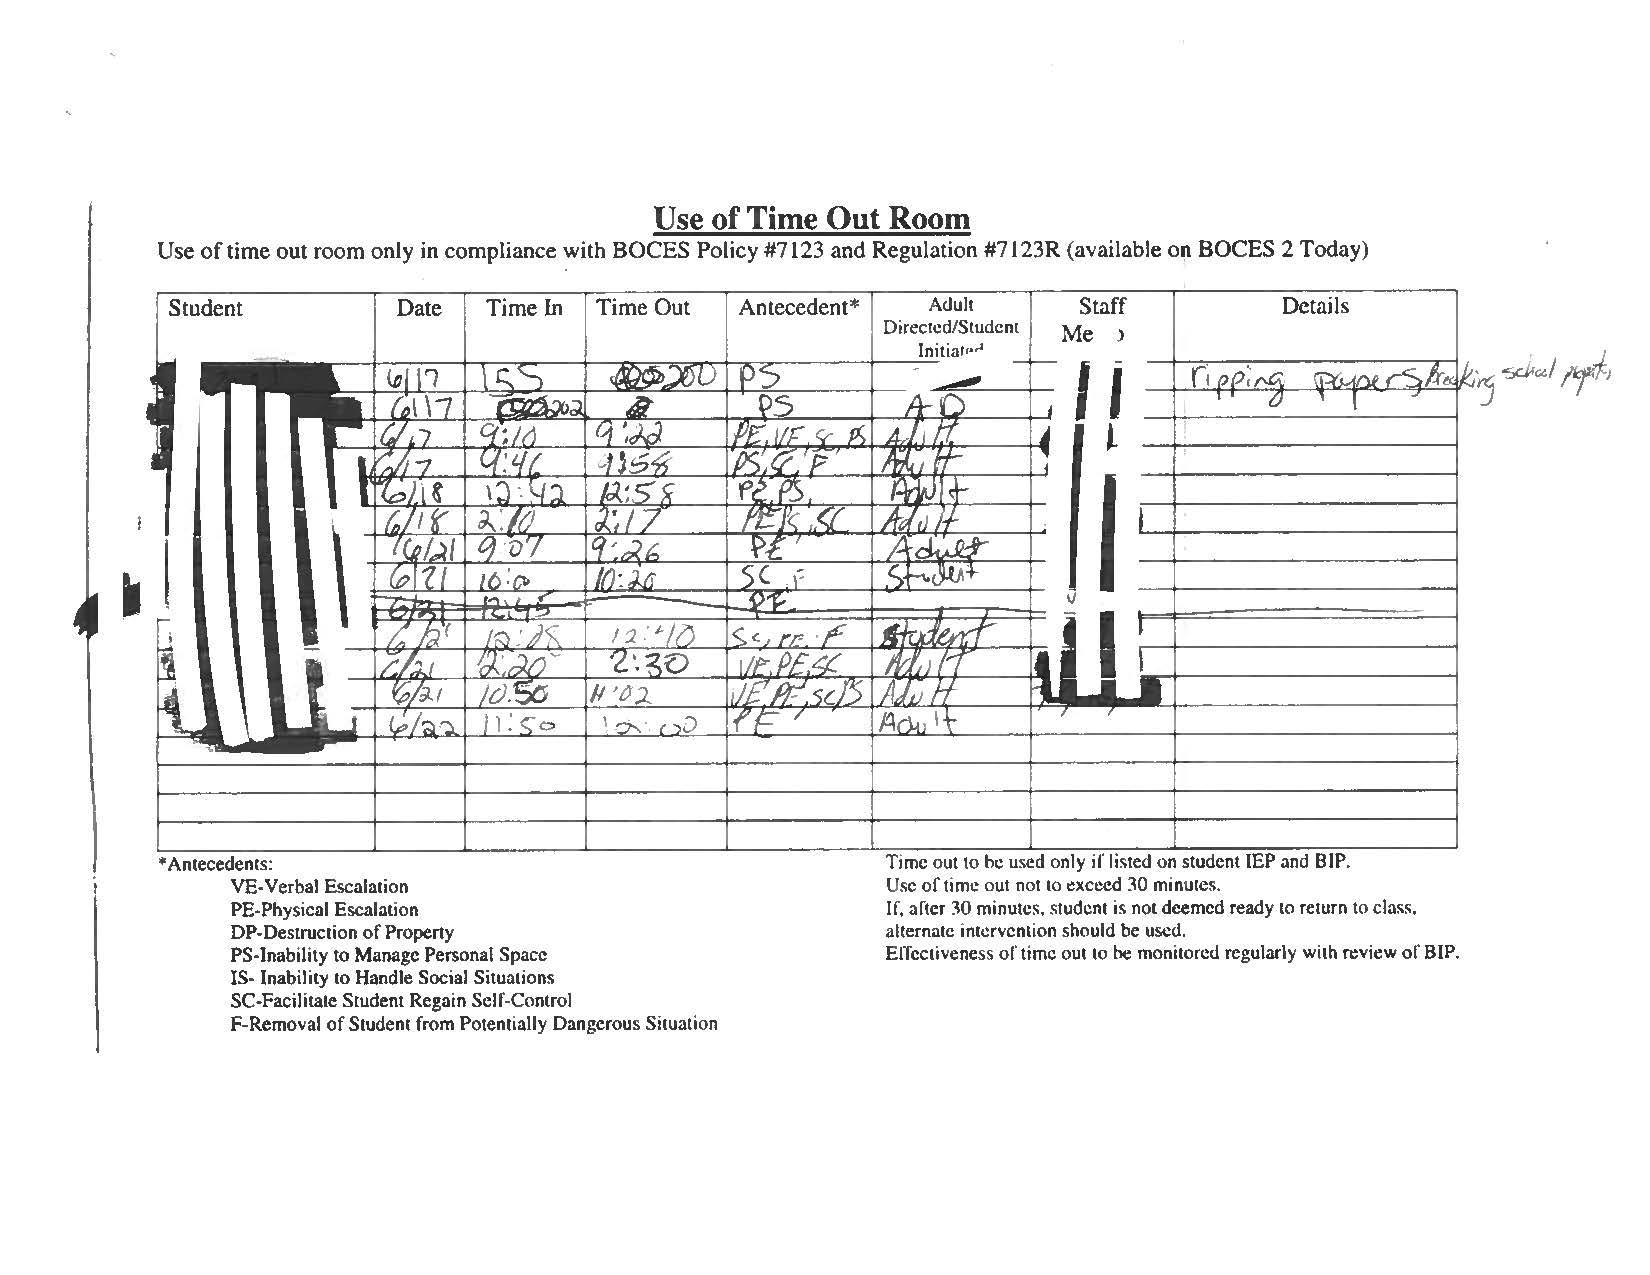 Use of Time Out Room
Use of time out room only in compliance with BOCES Policy #7123 and Regulation #7123R (available on BOCES 2 Today)
Student Date Time In Time Out Antecedent* Adult Directed/Student Initiated Staff Me Details
6/17 155 200 PS ripping papers breaking school
6/17 202 PS AD
6/17 9:10 9:22 PE, VE, SC, PS Adult
6/17 9:46 PS, SC, F Adult
6/18 12:42 12:58 PE, PS, Adult
6/18 2:10 2:17 Adult
6/21 9:07 9:26 PE Adult
6/21 10:20 SC, F Student
6/21 12:45 PE
6/21 12:40 Student
6/21 2:20 2:30 VE, PE, SC Adult
6/21 10:50 11:02 VE, PE, SC/PS Adult
6/22 11:50 12:00 PE Adult
*Antecedents:
VE-Verbal Escalation
PE-Physical Escalation
DP-Destruction of Property
PS-Inability to Manage Personal Space
IS- Inability to Handle Social Situations
SC-Facilitate Student Regain Self-Control
F-Removal of Student from Potentially Dangerous Situation
Time out to be used only if listed on student IEP and BIP.
Use of time out not to exceed 30 minutes.
If, after 30 minutes, student is not deemed ready to return to class,
alternate intervention should be used.
Effectiveness of time out to be monitored regularly with review of BIP.